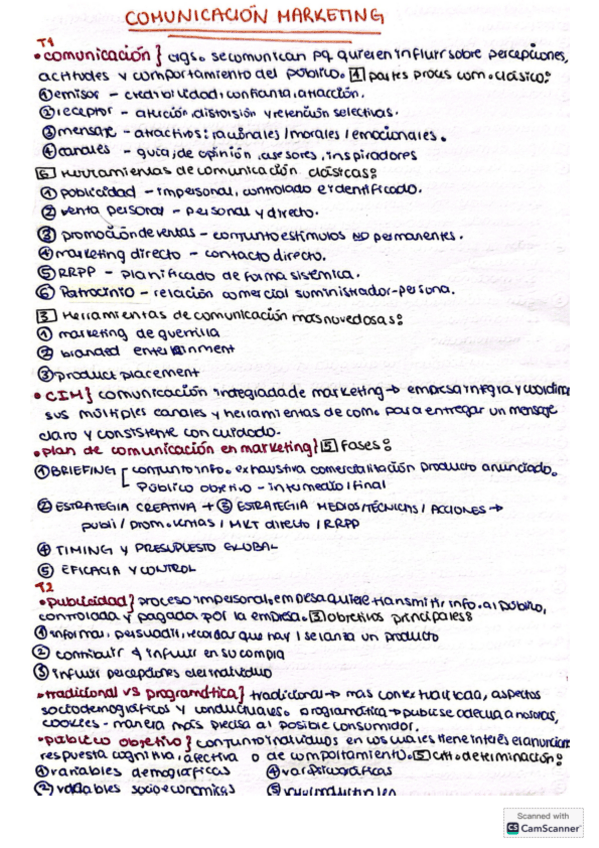 COMUNICACIÓN MARKETING
T1
• comunicación} orgs. se comunican pq quieren influir sobre percepciones,
actitudes y comportamiento del público. 4 partes proces com. clásico:
① emisor - credibilidad, confianza, atracción.
② receptor - atención, distorsión y retención selectivas.
③ mensaje - atractivos: racionales / morales / emocionales.
④ canales - guía, de opinión, asesores, inspiradores
6 Herramientas de comunicación clásicas:
① publicidad - impersonal, controlado e identificado.
② venta personal - personal y directo.
③ promoción de ventas - conjunto estímulos NO permanentes.
④ marketing directo - contacto directo.
⑤ RRPP - planificado de forma sistémica.
⑥ Patrocinio - relación comercial suministrador-persona.
3 Herramientas de comunicación más novedosas:
① marketing de guerrilla
② branded entertainment
③ product placement
• CIM} comunicación integrada de marketing → empresa integra y coordina
sus múltiples canales y herramientas de com. para entregar un mensaje
claro y consistente con cuidado.
• plan de comunicación en marketing} 5 fases:
① BRIEFING [ conjunto info. exhaustiva comercialización producto anunciado.
Público objetivo - intermedio / final
② ESTRATEGIA CREATIVA + ③ ESTRATEGIA MEDIOS / TÉCNICAS / ACCIONES →
publi / prom. ventas / MKT directo / RRPP
④ TIMING Y PRESUPUESTO GLOBAL
⑤ EFICACIA Y CONTROL
T2
• publicidad} proceso impersonal, empresa quiere transmitir info. al público,
controlada y pagada por la empresa. 3 objetivos principales:
① informar, persuadir, recordar que hay / se lanza un producto
② contribuir e influir en su compra
③ influir percepciones del individuo
• tradicional vs programática} tradicional → más contextualizada, aspectos
sociodemográficos y conductuales. programática → publi se adecua a nosotros,
cookies - manera más precisa al posible consumidor.
• público objetivo} conjunto individuos en los cuales tiene interés el anunciante
respuesta cognitiva, afectiva o de comportamiento. 5 crit. determinación:
① variables demográficas ④ var. psicográficas
② variables socioeconómicas ⑤
Scanned with
CS CamScanner